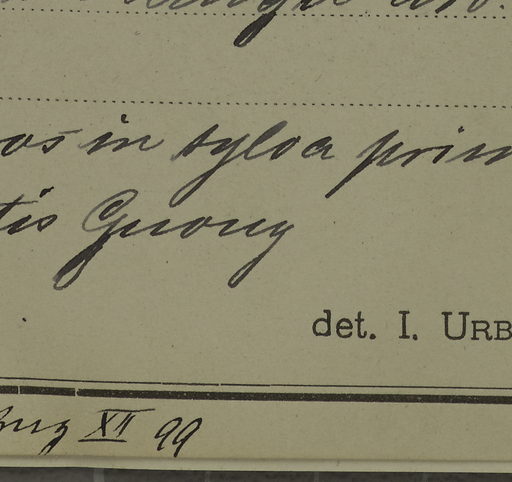 os in sylva prim
tis Guong
det. I. URB
XII 99